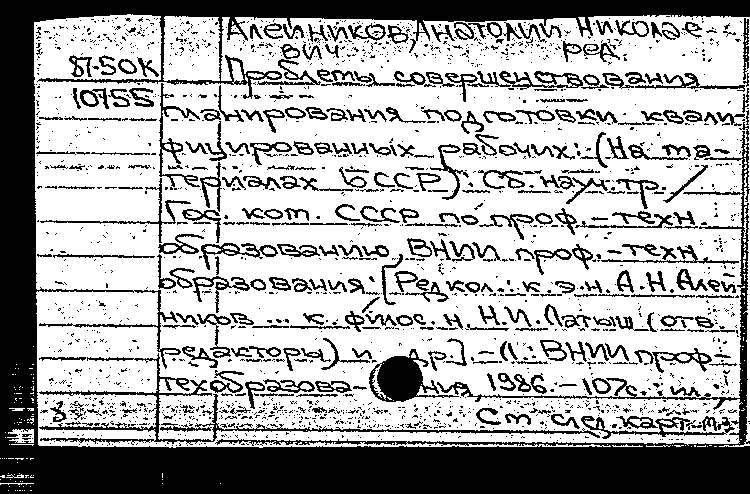 Алейников, Анатолий Николае-
вич ред.
87-50К Проблемы совершенствования
10755
планирования подготовки квали-
фицированных рабочих: (На ма-
териалах БССР): Сб. науч. тр. /
Гос. ком. СССР по проф.-техн.
образованию, ВНИИ проф.-техн.
образования: [Редкол.: к. э. н. А. Н. Алей-
ников ... к. филос. н. Н. И. Латыш (отв.
редакторы) и др.]. - Л.: ВНИИ проф-
техобразова- ния, 1986. - 107 с.: ил.,
См. след. карт.